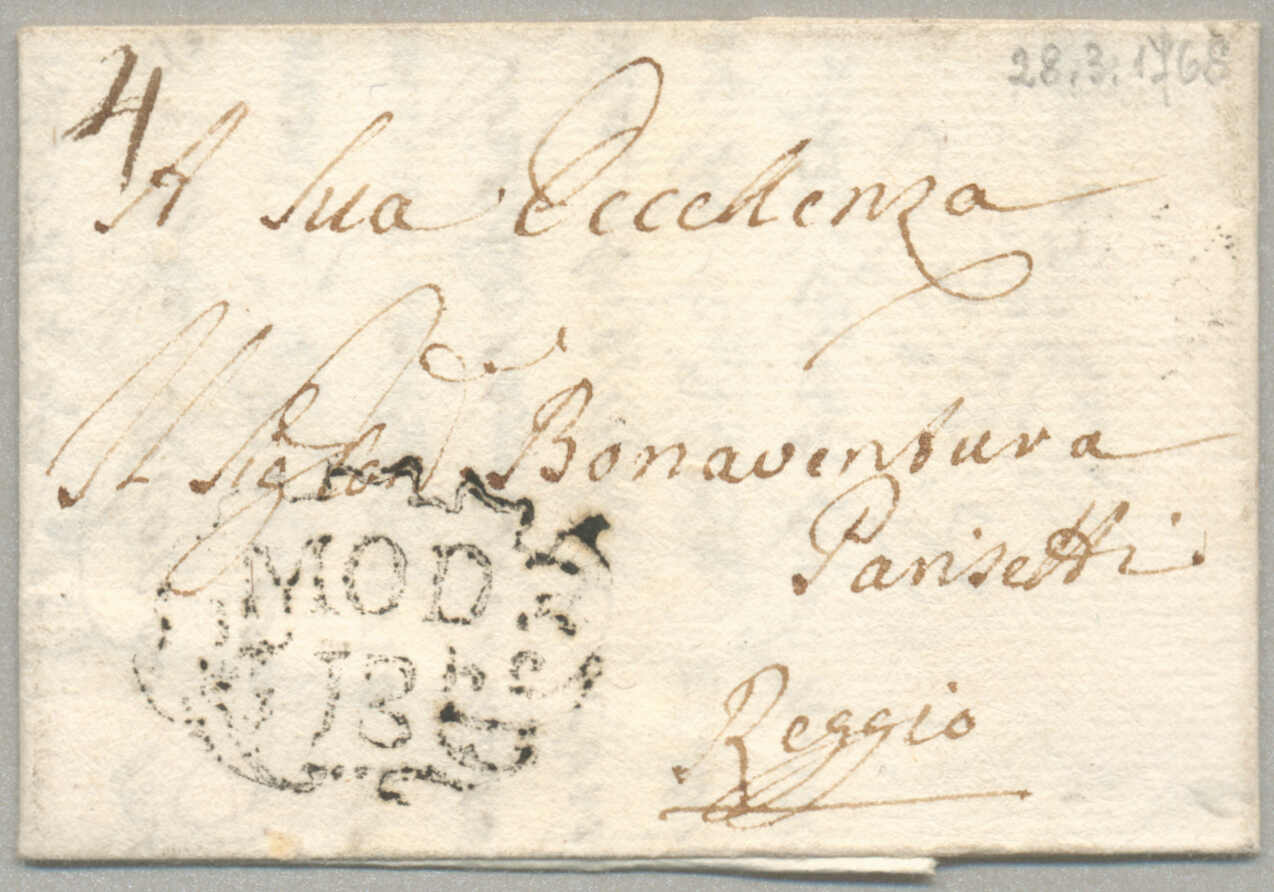 28.3.1768
4
A Sua Eccellenza
Il Sig.
Bonaventura
Parisetti
Reggio
MOD